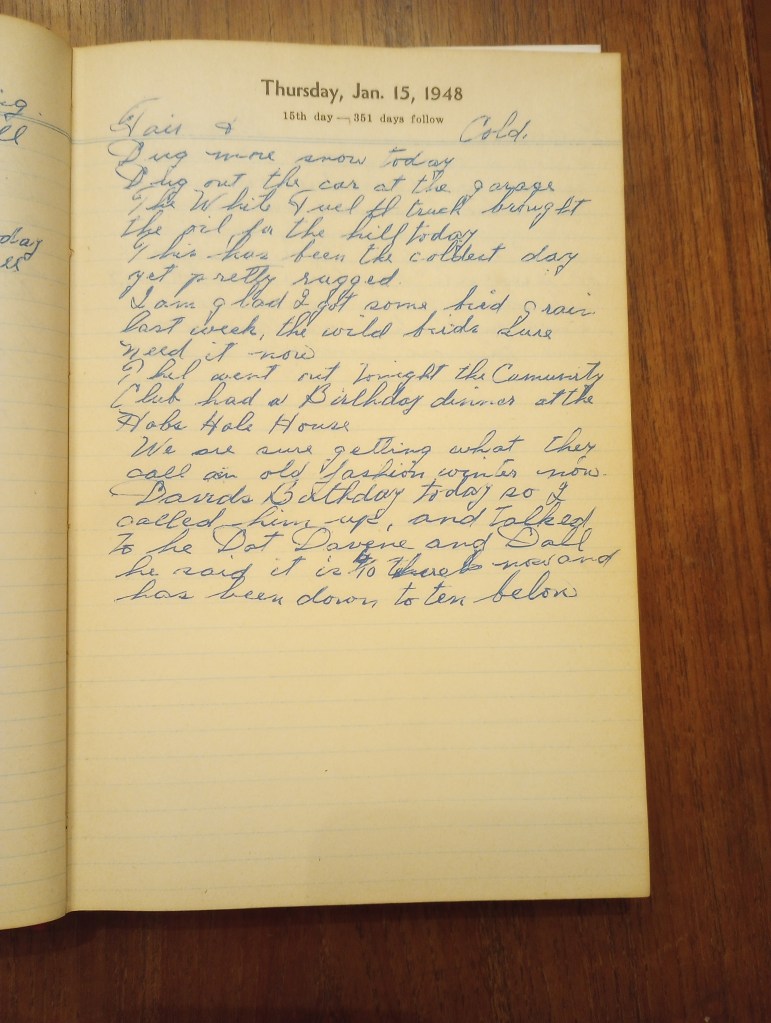 ng.
ll
day
Thursday, Jan. 15, 1948
15th day — 351 days follow
Fair & Cold.
Dug more snow today
Dug out the car at the garage
The White Fuel truck brought
the oil for the hill today
This has been the coldest day
yet pretty rugged.
I am glad I got some bird grain
last week, the wild birds sure
need it now
Thel went out tonight the Comunity
Club had a Birthday dinner at the
Hobs Hole House
We are sure getting what they
call an old fashion winter now.
Davids Birthday today so I
called him up, and talked
to he Dot Davene and Doll
he said it is 40 there now and
has been down to ten below